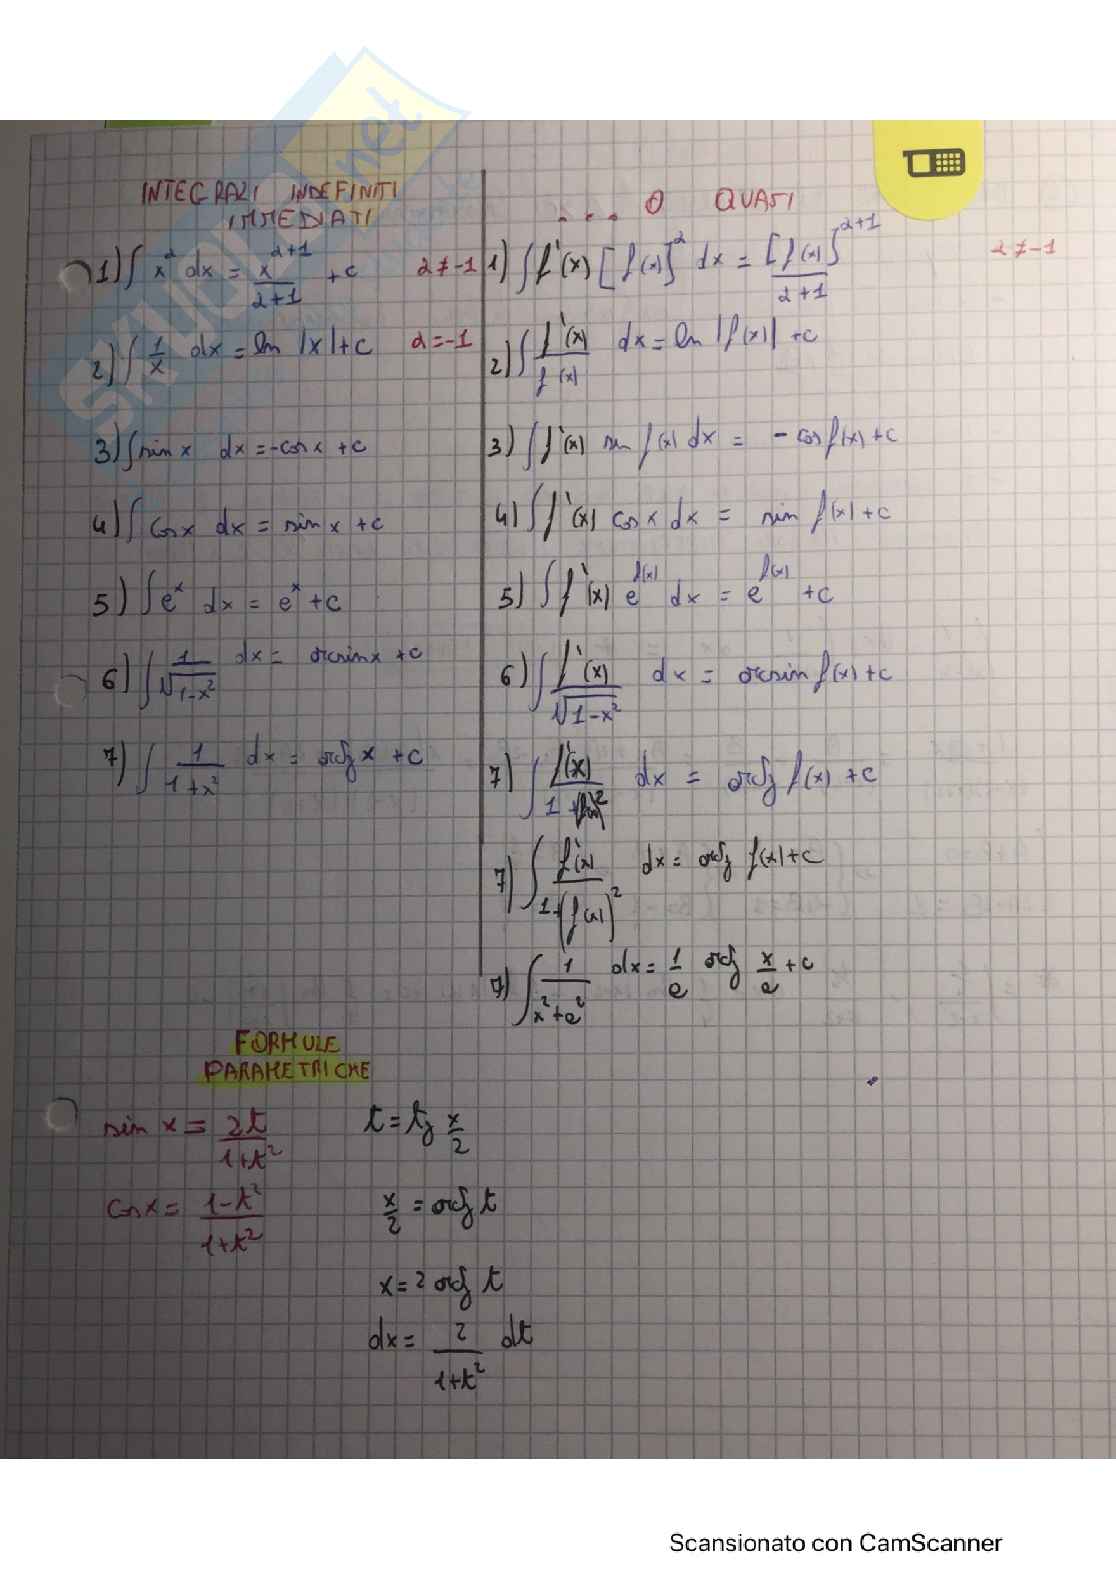 INTEGRALI INDEFINITI
IMMEDIATI
1) ∫ x^α dx = x^(α+1)/(α+1) + c   α ≠ -1
2) ∫ 1/x dx = ln |x| + c   α = -1
3) ∫ sin x dx = -cos x + c
4) ∫ cos x dx = sin x + c
5) ∫ e^x dx = e^x + c
6) ∫ 1/√(1-x²) dx = arcsin x + c
7) ∫ 1/(1+x²) dx = arctg x + c
... O QUASI
1) ∫ f'(x) [f(x)]^α dx = [f(x)]^(α+1)/(α+1)   α ≠ -1
2) ∫ f'(x)/f(x) dx = ln |f(x)| + c
3) ∫ f'(x) sin f(x) dx = - cos f(x) + c
4) ∫ f'(x) cos x dx = sin f(x) + c
5) ∫ f'(x) e^f(x) dx = e^f(x) + c
6) ∫ f'(x)/√(1-x²) dx = arcsin f(x) + c
7) ∫ f'(x)/(1+ ²) dx = arctg f(x) + c
7) ∫ f'(x)/(1+(f(x))²) dx = arctg f(x) + c
7) ∫ 1/(x²+a²) dx = 1/a arctg x/a + c
FORMULE
PARAMETRICHE
sin x = 2t/(1+t²)   t = tg x/2
cos x = (1-t²)/(1+t²)   x/2 = arctg t
x = 2 arctg t
dx = 2/(1+t²) dt
SKUOLA.net
Scansionato con CamScanner